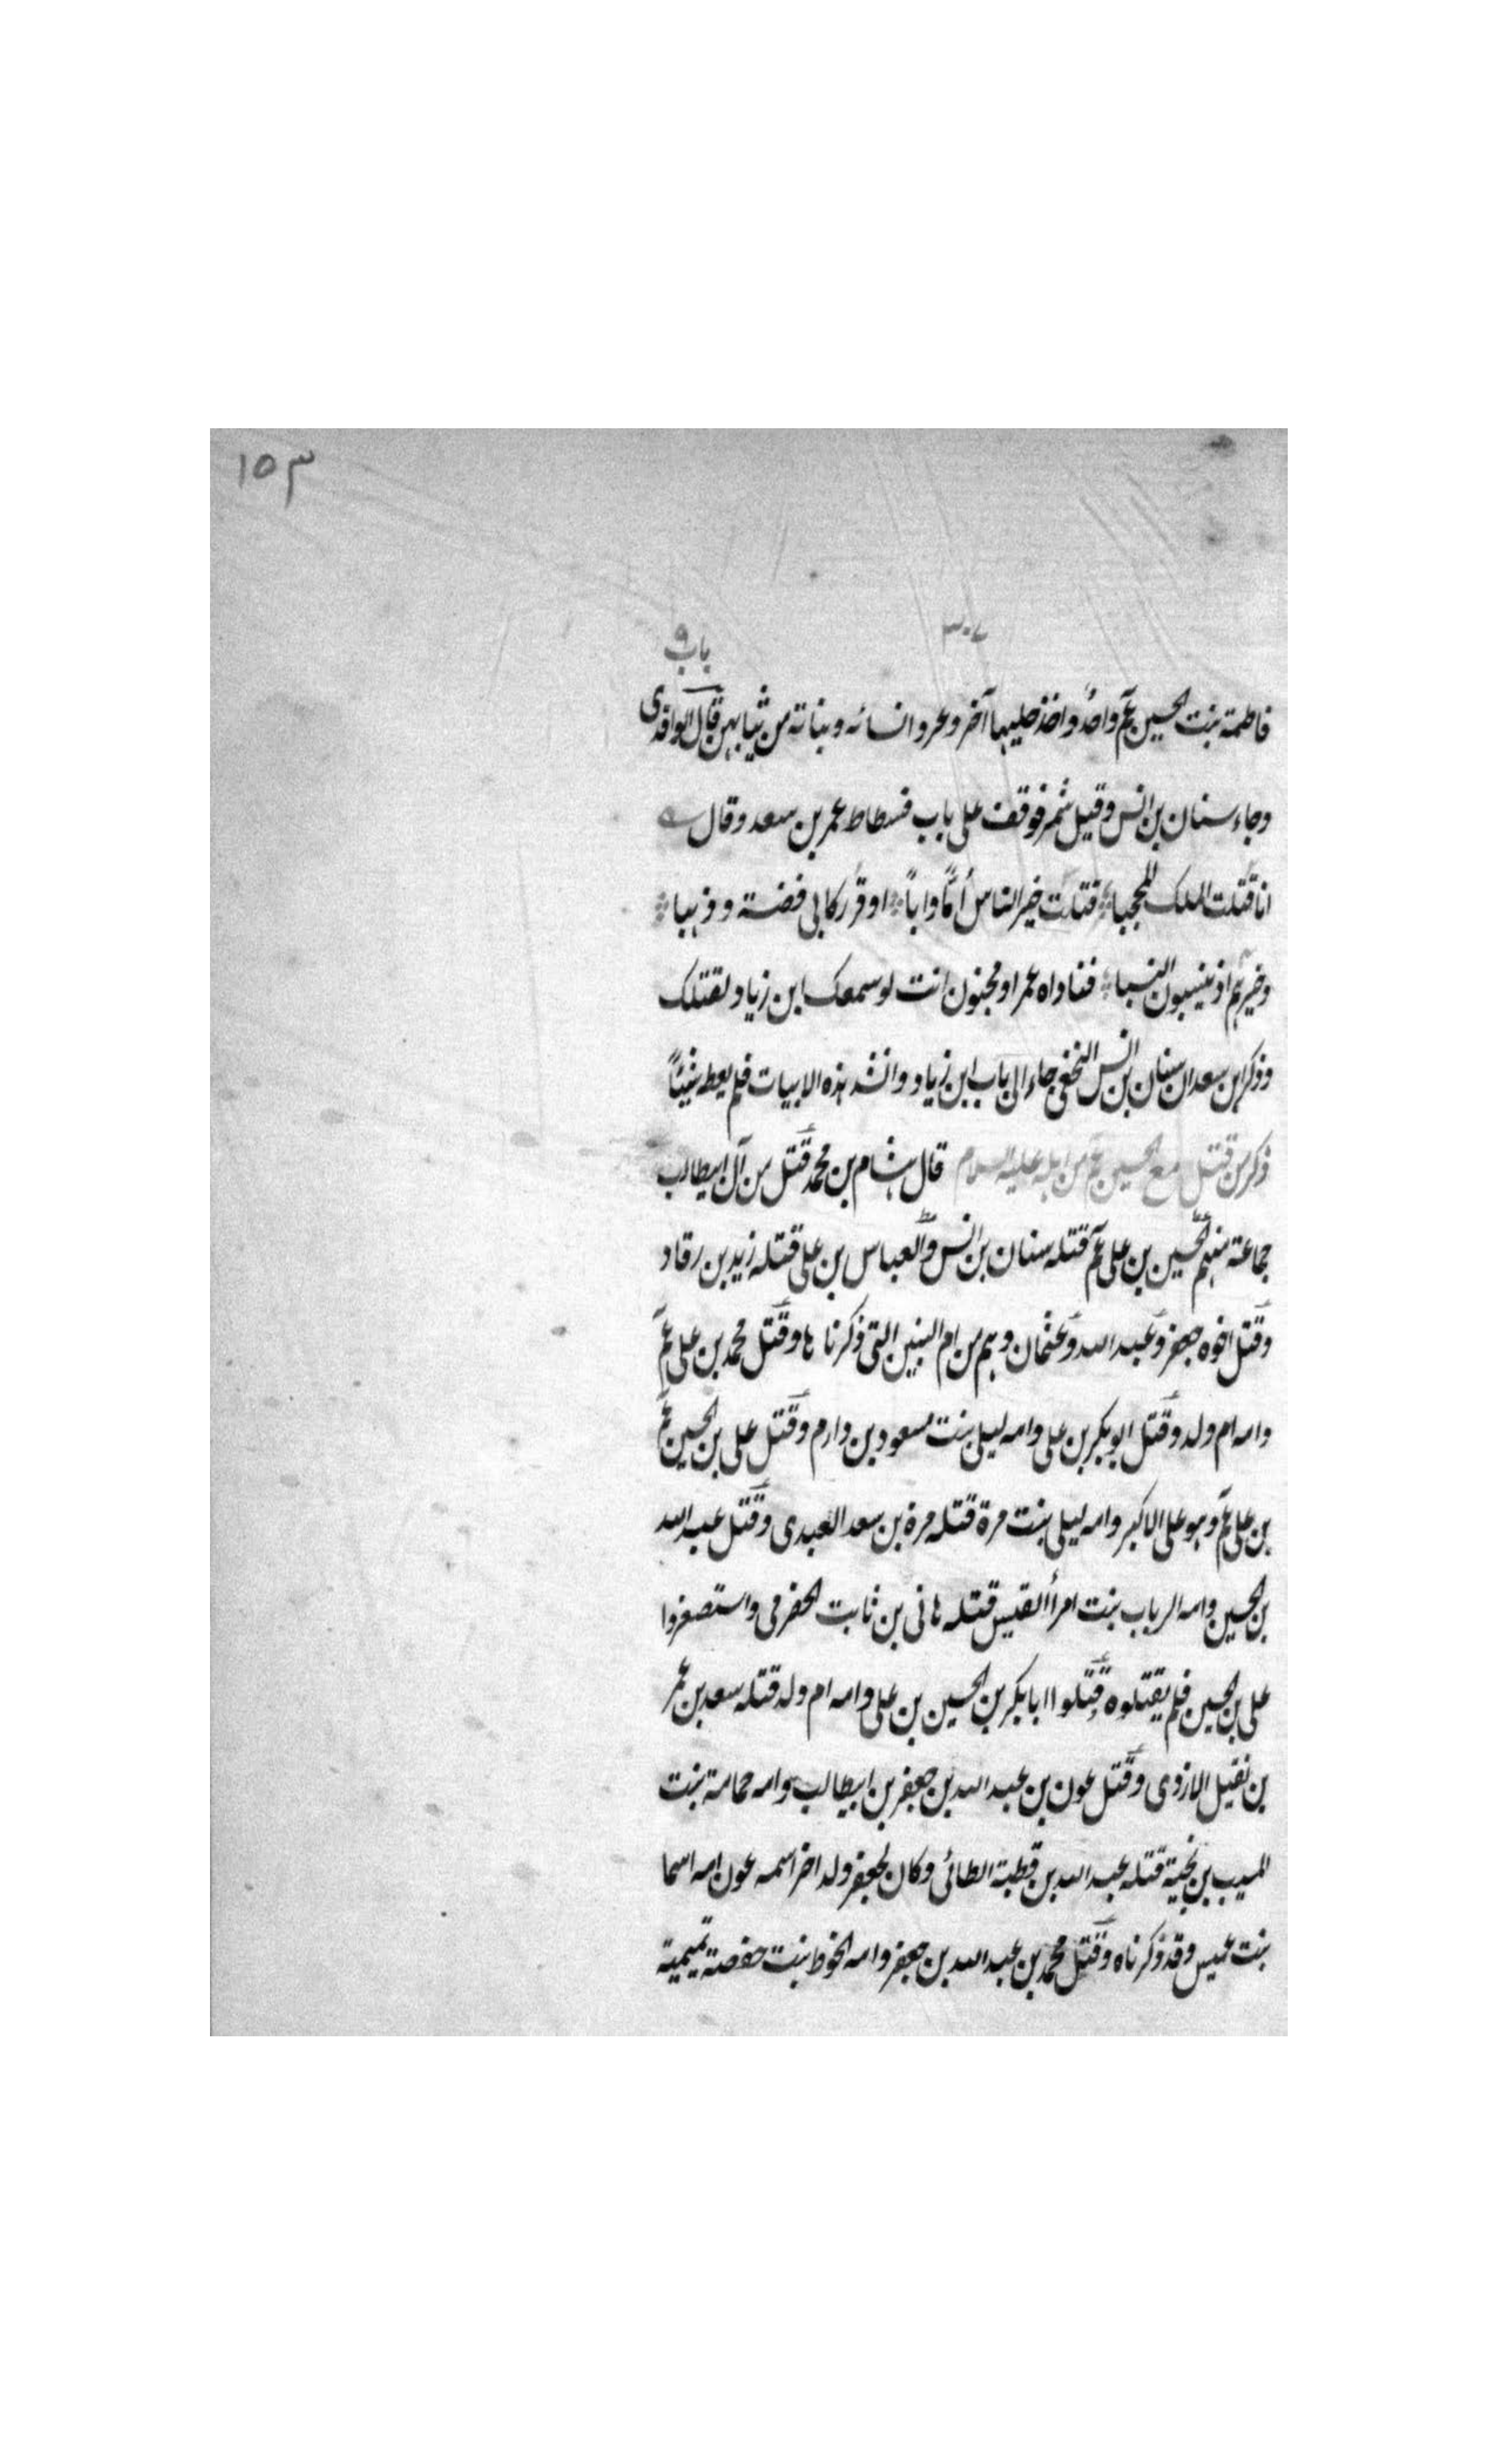 ١٥٣
٣٠٧
باب ٩
فاطمة بنت الحسين عم واحد واخذ حليها آخر وعروا نسائه وبناته من ثيابهن قال الواقدى
وجاء سنان بن انس وقيل شمر فوقف على باب فسطاط عمر بن سعد وقال
انا قتلت الملك المحجبا قتلت خير الناس أمّاً وابا اوقر ركابى فضة وذهبا
وخيرهم اذ ينسبون النسبا فناداه عمر او مجنون انت لو سمعك ابن زياد لقتلك
وذكر ابن سعد ان سنان بن انس النخعى جاء الى باب ابن زياد وانشد هذه الابيات فلم يعطه شيئاً
ذكر من قتل مع الحسين عم من اهله عليه السلام قال هشام بن محمد قتل من آل ابيطالب
جماعة منهم الحسين بن على عم قتله سنان بن انس والعباس بن على قتله زيد بن رقاد
وقتل اخوه جعفر وعبد الله وعثمان وهم من ام البنين التى ذكرناها وقتل محمد بن على عم
وامه ام ولد وقتل ابو بكر بن على وامه ليلى بنت مسعود بن دارم وقتل على بن الحسين عم
بن على عم وهو على الاكبر وامه ليلى بنت مرة قتله مرة بن سعد العبدى وقتل عبد الله
بن الحسين وامه الرباب بنت امرأ القيس قتله هانى بن ثابت الحضرمى واستصغروا
على بن الحسين فلم يقتلوه وقتلوا ابا بكر بن الحسين بن على وامه ام ولد قتله سعد بن عمر
بن نفيل الازدى وقتل عون بن عبد الله بن جعفر بن ابيطالب وامه حمامة بنت
المسيب بن نجية قتله عبد الله بن قطبة الطائى وكان لجعفر ولد اخر اسمه عون امه اسما
بنت عميس وقد ذكرناه وقتل محمد بن عبد الله بن جعفر وامه الخوط بنت حفصة تميمية